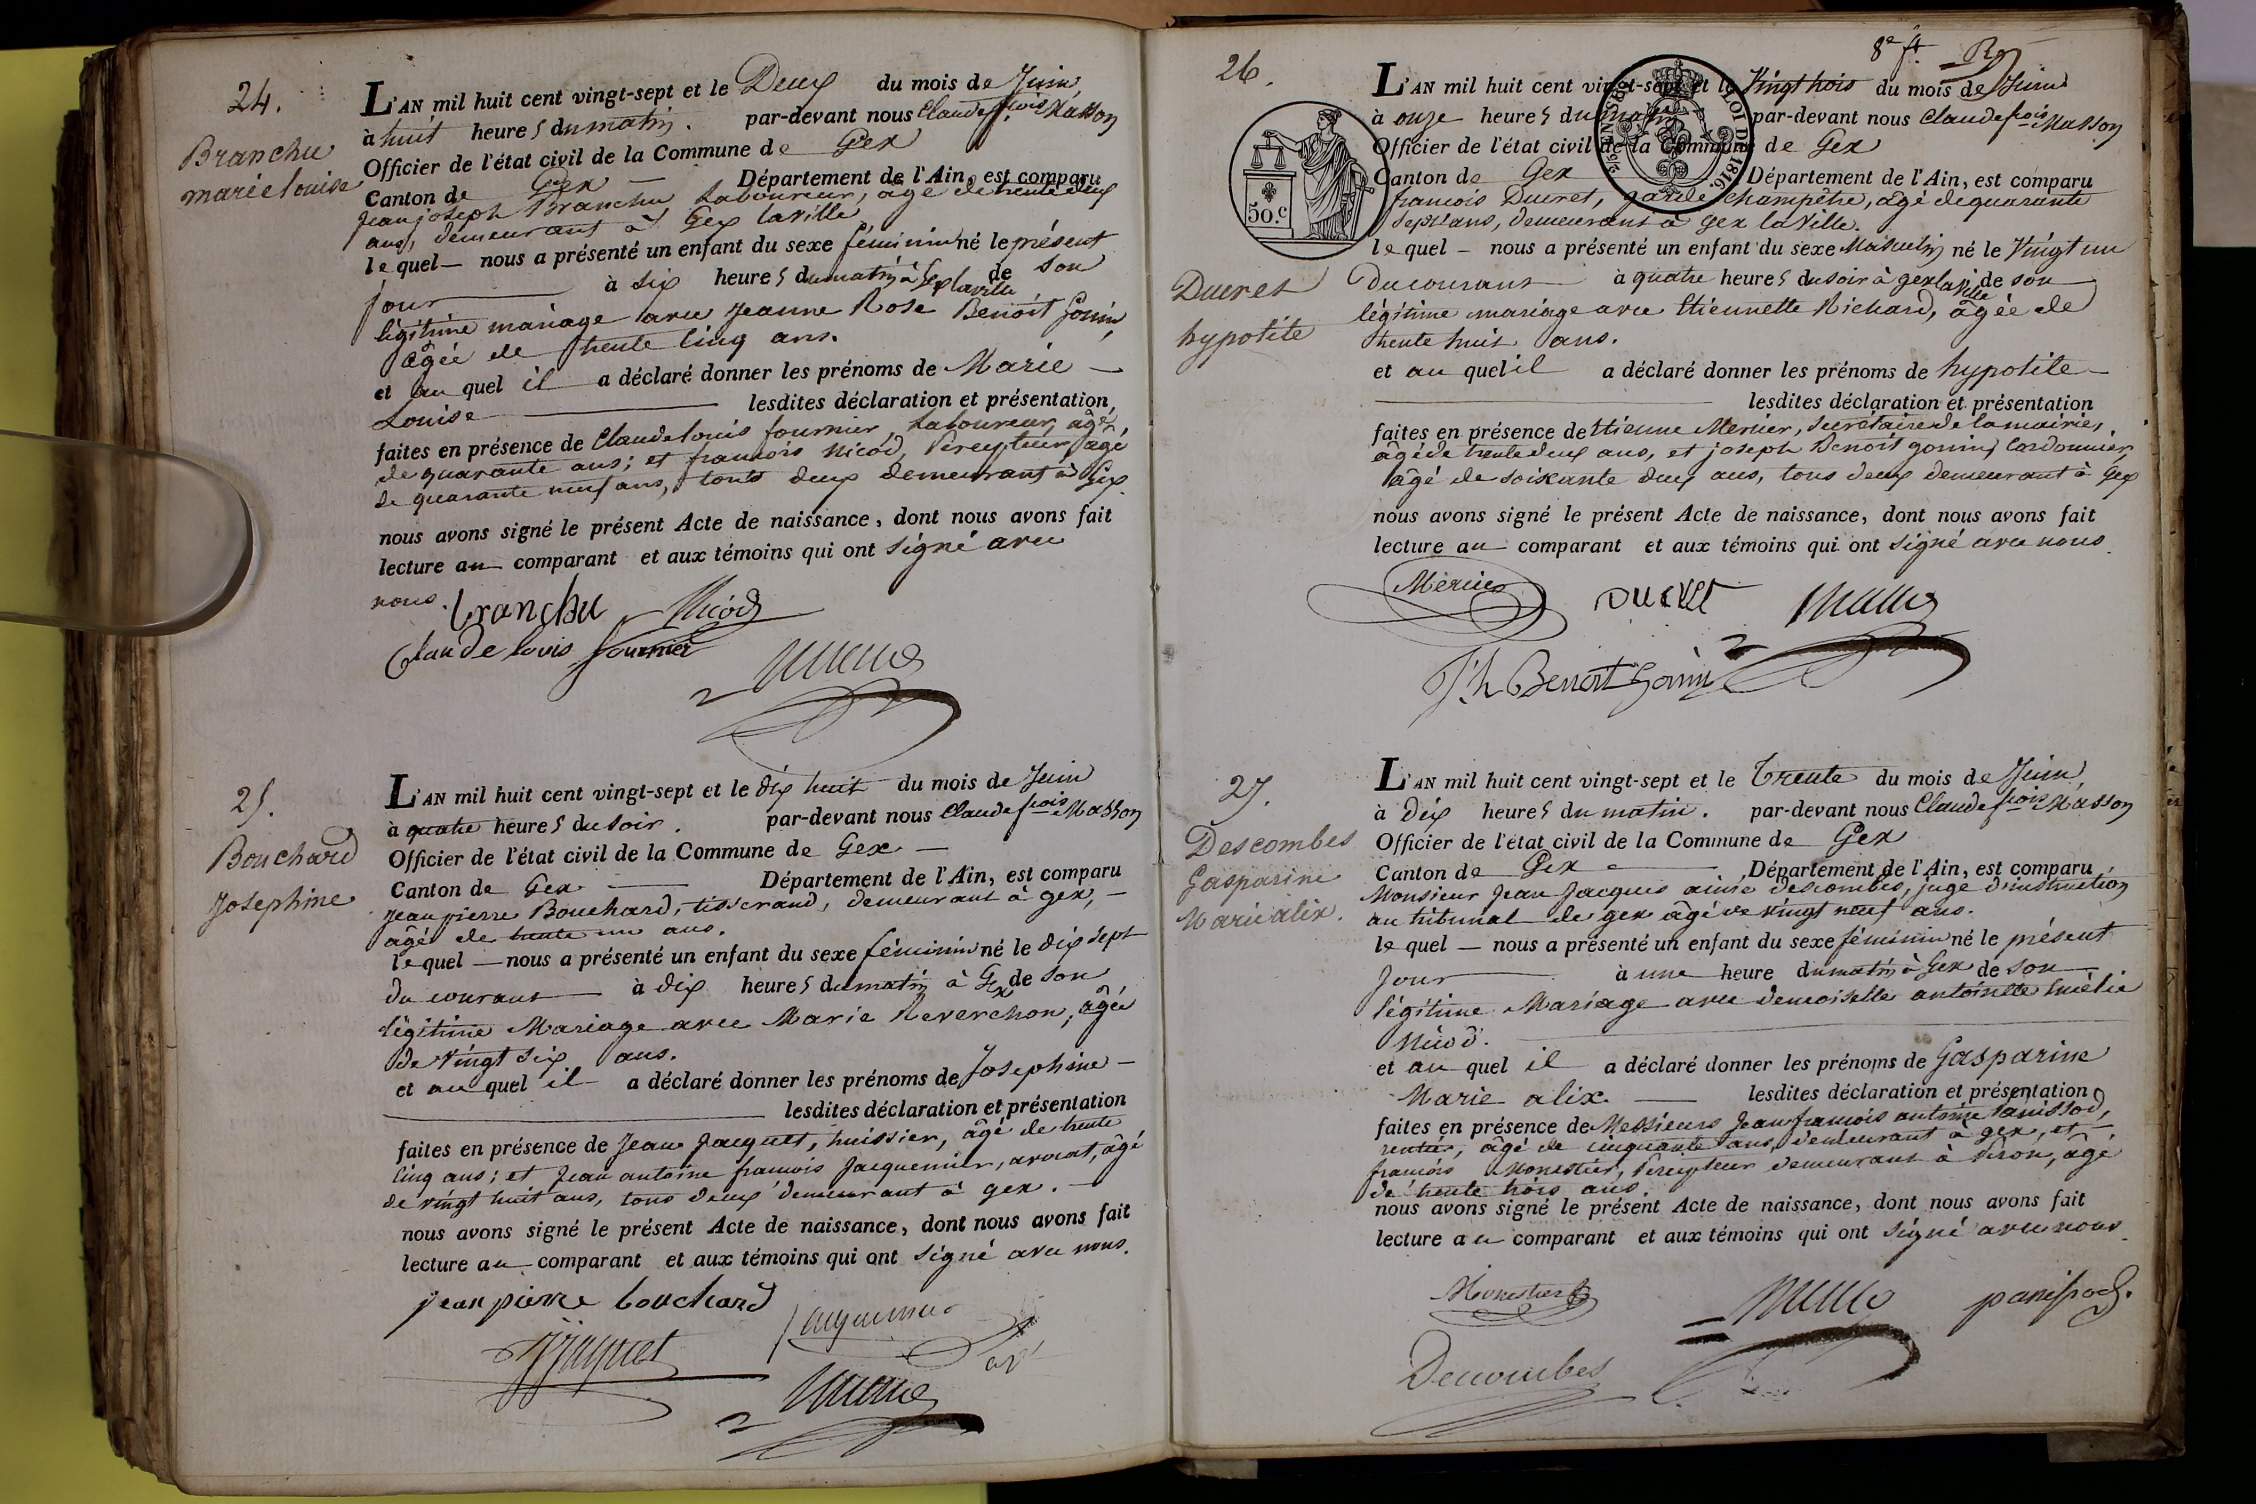 24.
Branchu
marie louise
L'AN mil huit cent vingt-sept et le Deux du mois de Juin
à huit heures du matin. par-devant nous Claude f.cois Masson
Officier de l'état civil de la Commune de Gex
Canton de Gex — Département de l'Ain, est comparu
Jean joseph Branchu Laboureur, âgé de trente deux
ans, demeurant à Gex la ville
lequel — nous a présenté un enfant du sexe féminin né le présent
jour à six heures du matin à Gex la ville de son
légitime mariage avec Jeanne Rose Benoit Gonin,
âgée de trente cinq ans.
et au quel il a déclaré donner les prénoms de Marie —
Louise — lesdites déclaration et présentation
faites en présence de Claude louis fournier, Laboureur, âgé
de quarante ans; et françois Nicod, Percepteur, âgé
de quarante neuf ans, tous deux demeurant à Gex
nous avons signé le présent Acte de naissance, dont nous avons fait
lecture au comparant et aux témoins qui ont signé avec
nous.
branchu Nicod
Claude louis fournier
25.
Bouchard
Josephine
L'AN mil huit cent vingt-sept et le dix huit du mois de Juin
à quatre heures du soir. par-devant nous Claude f.cois Masson
Officier de l'état civil de la Commune de Gex —
Canton de Gex — Département de l'Ain, est comparu
Jean pierre Bouchard, tisserand, demeurant à gex, —
âgé de trente un ans.
lequel — nous a présenté un enfant du sexe féminin né le dix sept
du courant — à dix heures du matin à Gex de son
légitime Mariage avec Marie Neverchon, âgée
de vingt six ans.
et au quel il — a déclaré donner les prénoms de Josephine —
lesdites déclaration et présentation
faites en présence de Jean Jacquet, huissier, âgé de trente
cinq ans; et Jean antoine françois Jacquemier, avocat, âgé
de vingt huit ans, tous deux demeurant à gex. —
nous avons signé le présent Acte de naissance, dont nous avons fait
lecture au comparant et aux témoins qui ont signé avec nous.
jean pierre bouchard
8e f.t
26.
LOI DE 1816.
50.c
L'AN mil huit cent vingt-sept et le Vingt trois du mois de Juin
à onze heures du matin par-devant nous Claude f.cois Masson
Officier de l'état civil de la Commune de Gex
Canton de Gex Département de l'Ain, est comparu
françois Ducret, garde champêtre, âgé de quarante
sept ans, demeurant à gex la Ville.
lequel — nous a présenté un enfant du sexe Masculin né le Vingt un
Ducret
hypolite
du courant — à quatre heures du soir à gex la ville de son
légitime mariage avec Etiennette Richard, âgée de
trente huit ans.
et au quel il a déclaré donner les prénoms de hypolite —
lesdites déclaration et présentation
faites en présence de Etienne Mercier, Secrétaire de la mairie,
âgé de trente deux ans, et joseph Benoit gonin, Cordonnier,
âgé de soixante deux ans, tous deux demeurant à Gex
nous avons signé le présent Acte de naissance, dont nous avons fait
lecture au comparant et aux témoins qui ont signé avec nous.
Mercier DUCRET
J.h Benoit Gonin
27.
Descombes
Gasparine
Marie alix.
L'AN mil huit cent vingt-sept et le Trente du mois de Juin
à Dix heures du matin. par-devant nous Claude f.cois Masson
Officier de l'état civil de la Commune de Gex
Canton de Gex — Département de l'Ain, est comparu
Monsieur Jean Jacques aimé Descombes, juge d'instruction
au tribunal de gex âgé de vingt neuf ans.
lequel — nous a présenté un enfant du sexe féminin né le présent
Jour à une heure du matin à Gex de son
légitime Mariage avec demoiselle antoinette
Nicod.
et au quel il a déclaré donner les prénoms de Gasparine
Marie alix. — lesdites déclaration et présentation
faites en présence de Messieurs Jean françois antoine Panissod,
rentier, âgé de cinquante ans, demeurant à gex, et —
françois Monestier, Percepteur demeurant à Péron, âgé
de trente trois ans.
nous avons signé le présent Acte de naissance, dont nous avons fait
lecture au comparant et aux témoins qui ont signé avec nous.
Monestier panissod.
Descombes